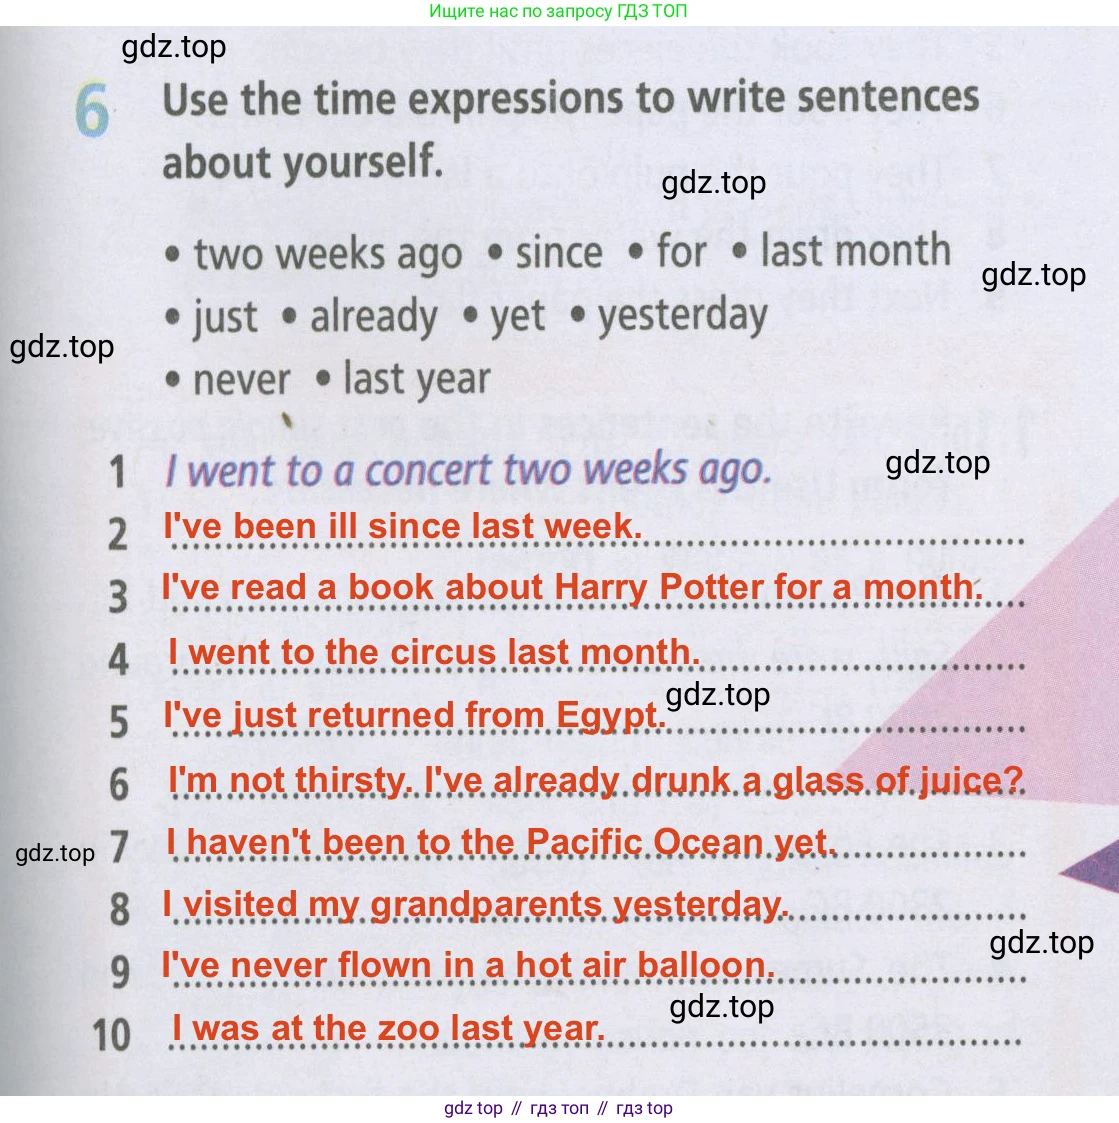 Ищите нас по запросу ГДЗ ТОП
gdz.top
6 Use the time expressions to write sentences
about yourself.
gdz.top
• two weeks ago • since • for • last month
gdz.top
• just • already • yet • yesterday
gdz.top
• never • last year
1 I went to a concert two weeks ago.
gdz.top
2 I've been ill since last week.
3 I've read a book about Harry Potter for a month.
4 I went to the circus last month.
gdz.top
5 I've just returned from Egypt.
6 I'm not thirsty. I've already drunk a glass of juice?
gdz.top
7 I haven't been to the Pacific Ocean yet.
8 I visited my grandparents yesterday.
gdz.top
9 I've never flown in a hot air balloon.
gdz.top
10 I was at the zoo last year.
gdz top // гдз топ // гдз top